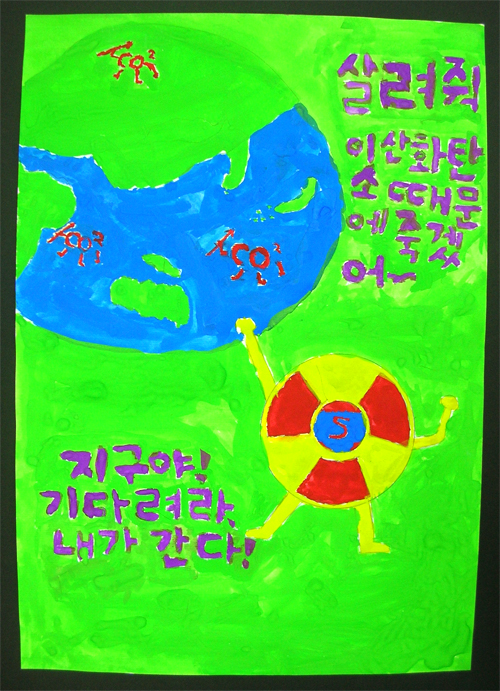 CO²
살려줘
이산화탄
소 때문
에 죽겠
어~
CO²
CO²
S
지구야!
기다려라,
내가 간다!